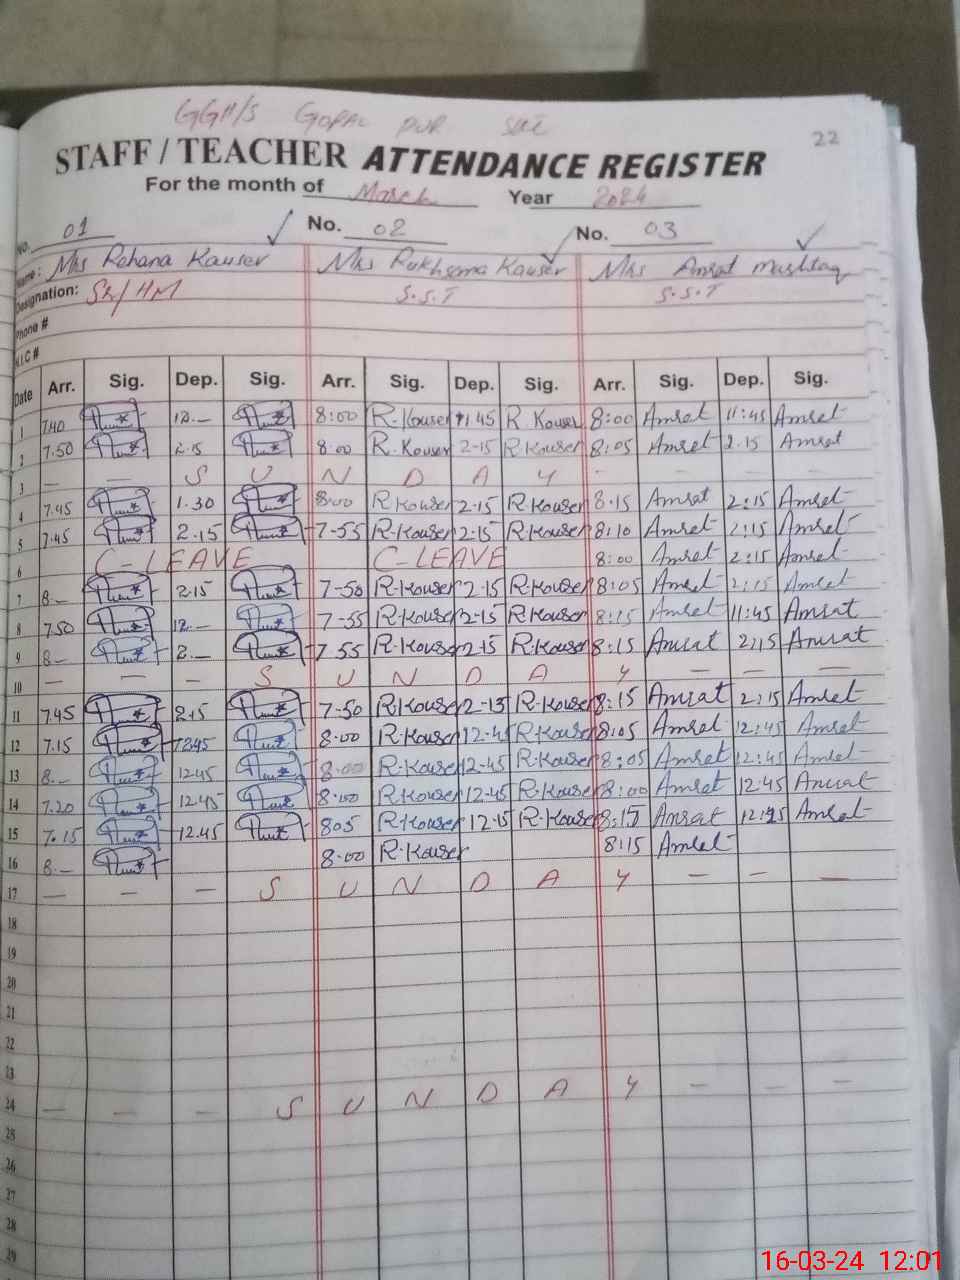 GGH/S GOPAL PUR
22
STAFF / TEACHER ATTENDANCE REGISTER
For the month of March Year 2024
No. 01 No. 02 No. 03
Name: Mrs Rehana Kauser Mrs Rukhsana Kauser Mrs Amrat Mushtaq
Designation: S.S.T S.S.T
Phone #
N.I.C #
Date Arr. Sig. Dep. Sig. Arr. Sig. Dep. Sig. Arr. Sig. Dep. Sig.
1 7.40 12.— 8:00 R.Kouser 11.45 R.Kouser 8:00 Amrat 11:45 Amrat
2 7.50 2.15 8:00 R.Kouser 2-15 R.Kouser 8:05 Amrat 2.15 Amrat
3 — — S U N D A Y — — — —
4 7.45 1.30 8:00 R.Kouser 2.15 R.Kouser 8.15 Amrat 2:15 Amrat
5 7.45 2.15 7-55 R.Kouser 2.15 R.Kouser 8:10 Amrat 2:15 Amrat
6 C-LEAVE C-LEAVE 8:00 Amrat 2:15 Amrat
7 8.— 2.15 7-50 R.Kouser 2.15 R.Kouser 8:05 Amrat 2:15 Amrat
8 7.50 12.— 7-55 R.Kouser 2-15 R.Kouser 8:15 Amrat 11:45 Amrat
9 8— 2.— 7.55 R.Kouser 2.15 R.Kouser 8:15 Amrat 2:15 Amrat
10 — — — S U N D A Y — — —
11 7.45 2.15 7-50 R.Kouser 2-15 R.Kouser 8:15 Amrat 2:15 Amrat
12 7.15 12.45 8:00 R.Kouser 12-45 R.Kouser 8:05 Amrat 12:45 Amrat
13 8.— 12.45 8:00 R.Kouser 12-45 R.Kouser 8:05 Amrat 12:45 Amrat
14 7.20 12.45 8:00 R.Kouser 12.45 R.Kouser 8:00 Amrat 12:45 Amrat
15 7.15 12.45 8.05 R.Kouser 12.15 R.Kouser 8:15 Amrat Amrat
16 8.— 8:00 R.Kouser 8:15 Amrat
17 — — — S U N D A Y — — —
18
19
20
21
22
23
24 — — — S U N D A Y — — —
25
26
27
28
29
16-03-24 12:01